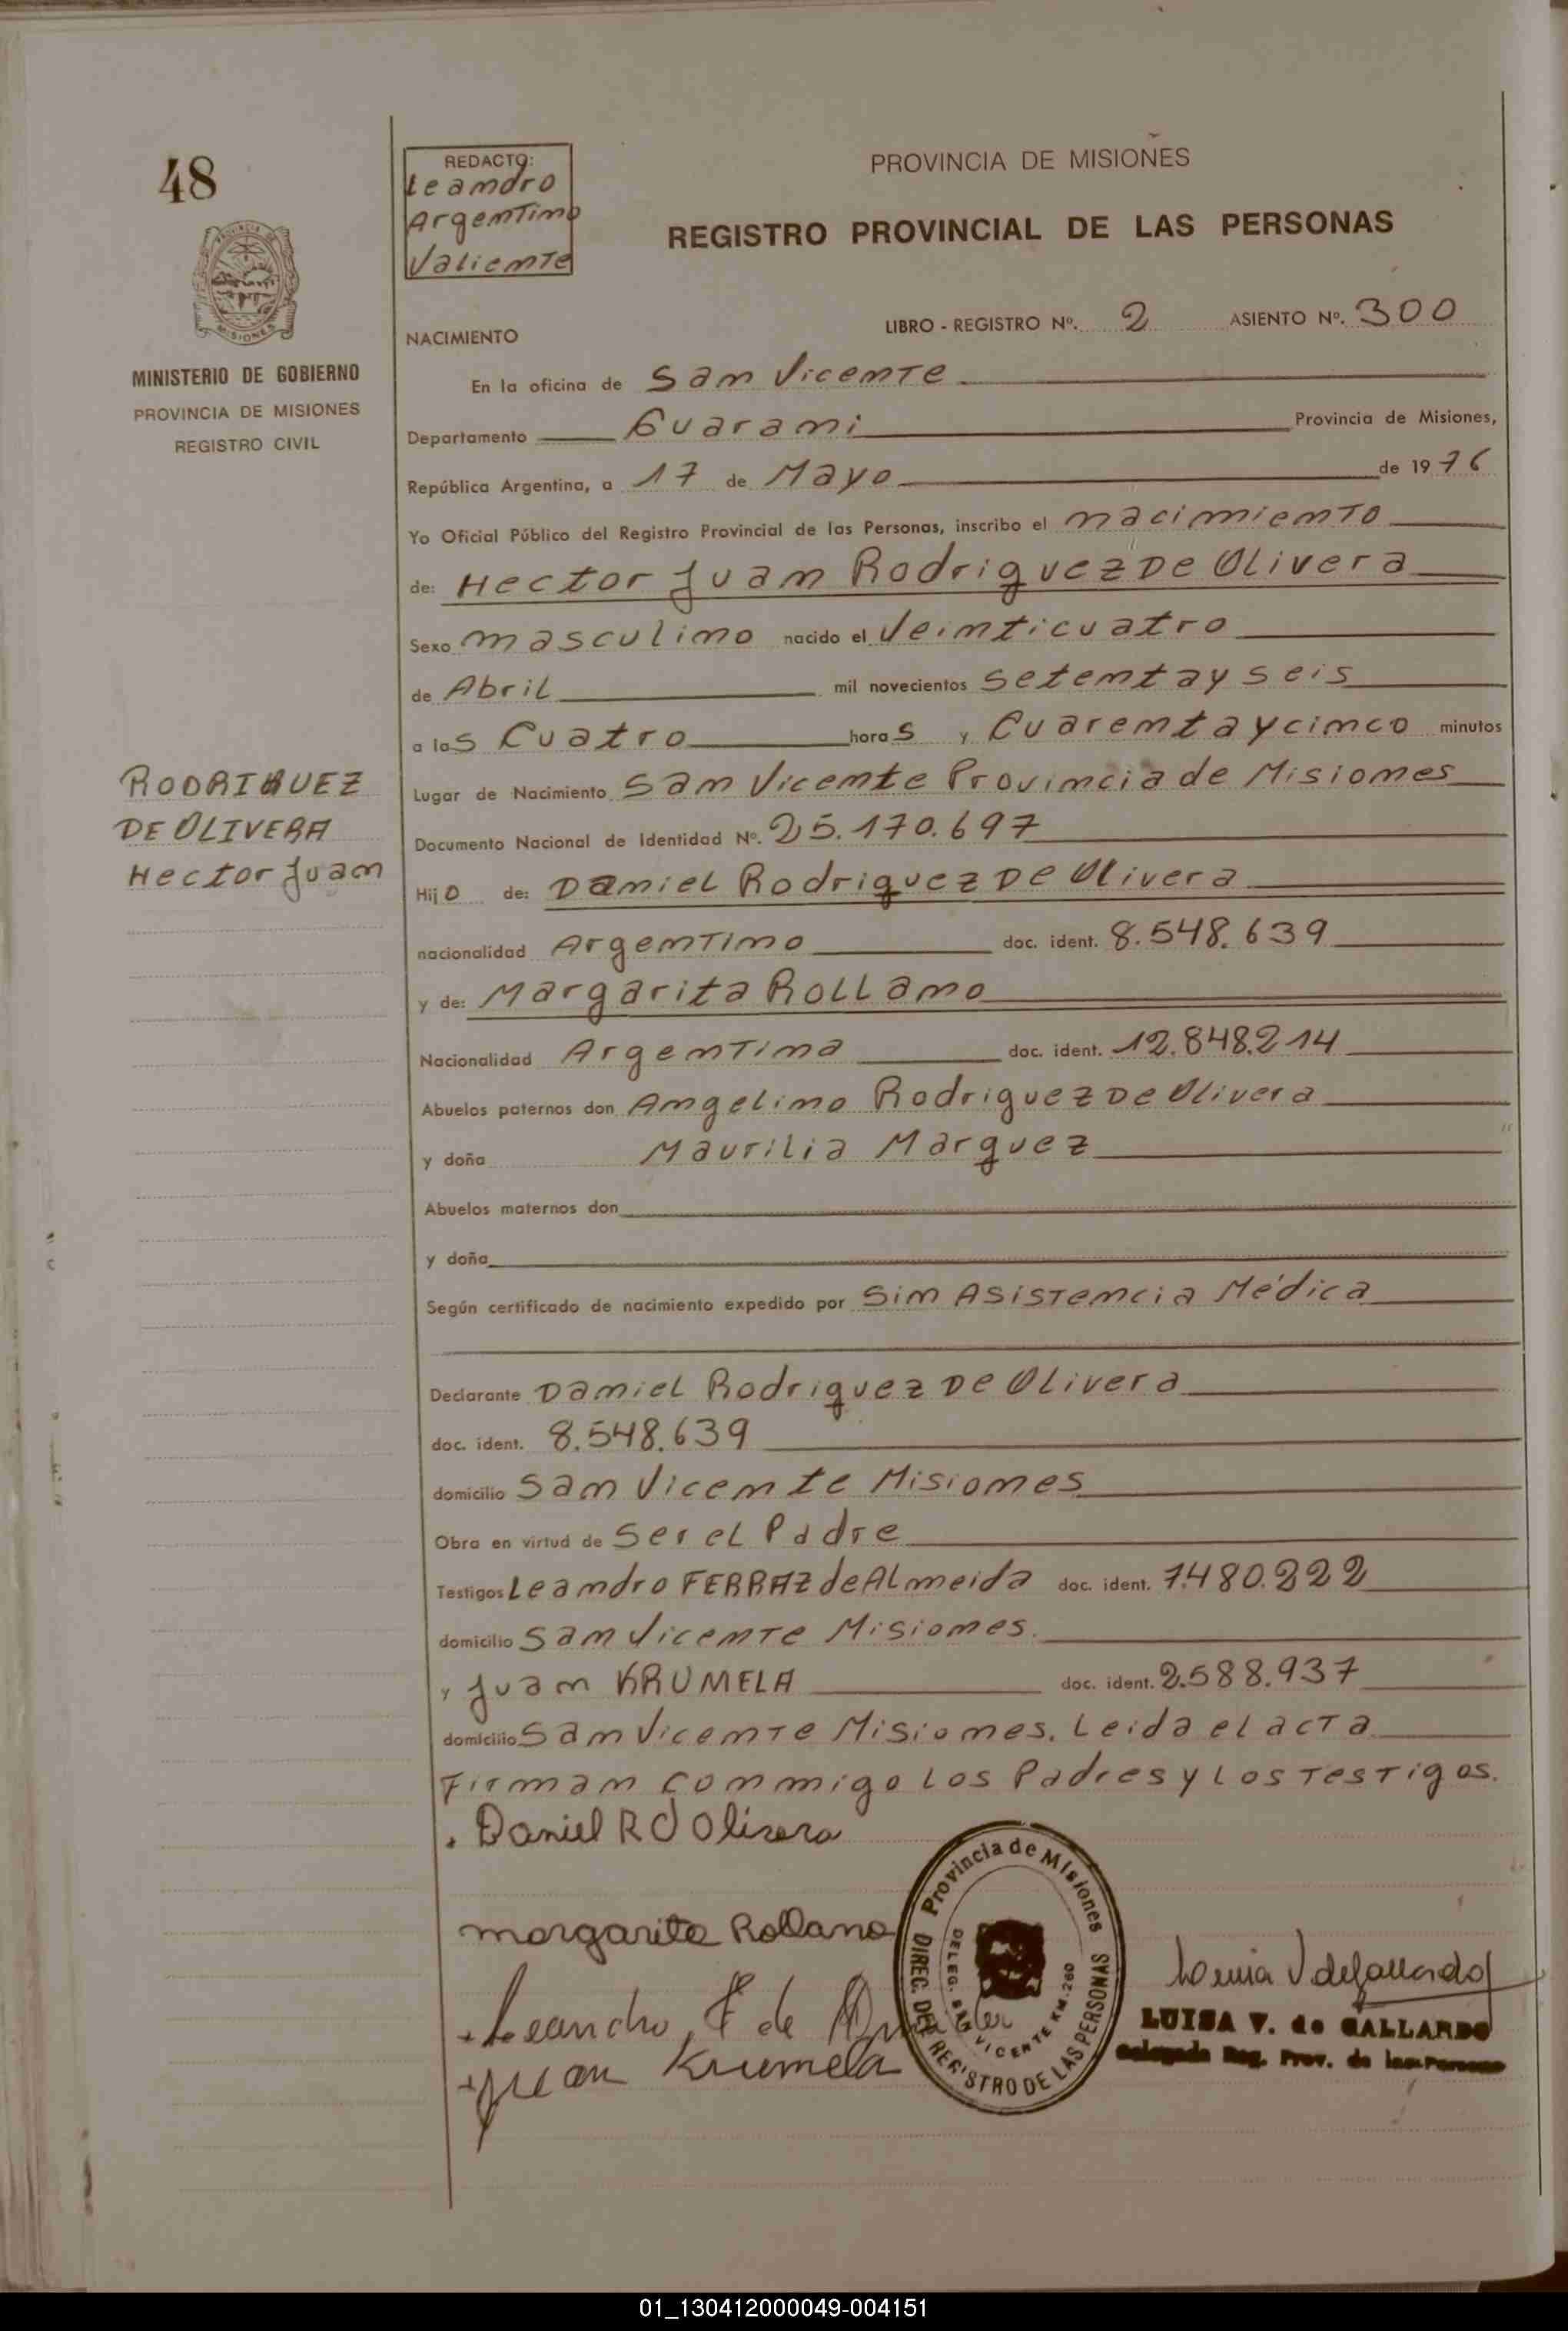 48
REDACTO:
Leandro
Argentino
Valiente
PROVINCIA DE MISIONES
REGISTRO PROVINCIAL DE LAS PERSONAS
PROVINCIA DE MISIONES
MINISTERIO DE GOBIERNO
PROVINCIA DE MISIONES
REGISTRO CIVIL
NACIMIENTO
LIBRO - REGISTRO Nº. 2 ASIENTO Nº. 300
En la oficina de San Vicente
Departamento Guarani Provincia de Misiones,
República Argentina, a 17 de Mayo de 1976
Yo Oficial Público del Registro Provincial de las Personas, inscribo el nacimiento
de: Hector Juan Rodriguez De Olivera
Sexo masculino nacido el Veinticuatro
de Abril mil novecientos setenta y seis
a las Cuatro horas y Cuarenta y cinco minutos
RODRIGUEZ
DE OLIVERA
Hector Juan
Lugar de Nacimiento San Vicente Provincia de Misiones
Documento Nacional de Identidad Nº. 25.170.697
Hijo de: Daniel Rodriguez De Olivera
nacionalidad Argentino doc. ident. 8.548.639
y de: Margarita Rollano
Nacionalidad Argentina doc. ident. 12.848.214
Abuelos paternos don Angelino Rodriguez De Olivera
y doña Maurilia Marquez
Abuelos maternos don
y doña
Según certificado de nacimiento expedido por Sin Asistencia Médica
Declarante Daniel Rodriguez De Olivera
doc. ident. 8.548.639
domicilio San Vicente Misiones
Obra en virtud de Ser el Padre
Testigos Leandro FERRAZ de Almeida doc. ident. 7.480.222
domicilio San Vicente Misiones.
y Juan KRUMELA doc. ident. 2.588.937
domicilio San Vicente Misiones. Leida el acta
Firman conmigo los Padres y los Testigos.
Daniel R d Olivera
margarita Rollano
Leandro F de
Juan Krumela
Provincia de Misiones
DIREC. DEL REGISTRO DE LAS PERSONAS
DELEG. SAN VICENTE KM. 260
Luisa V de Gallardo
LUISA V. de GALLARDO
Delegada Reg. Prov. de las Personas
01_130412000049-004151